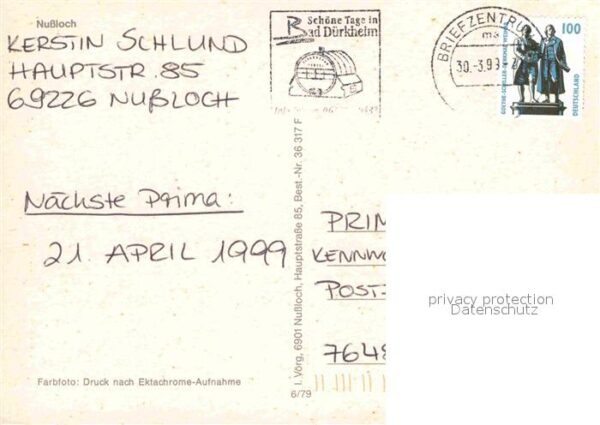 Nußloch
KERSTIN SCHLUND
HAUPTSTR. 85
69226 NUßLOCH
Schöne Tage in
Bad Dürkheim
BRIEFZENTRUM
ma
30.-3.99
100
GOETHE-SCHILLER-DENKMAL
DEUTSCHLAND
NÄCHSTE PRIMA:
21. APRIL 1999
I. Vörg, 6901 Nußloch, Hauptstraße 85, Best.-Nr. 36 317 F
PRIM
KENNWO
POST
7648
privacy protection
Datenschutz
Farbfoto: Druck nach Ektachrome-Aufnahme
6/79